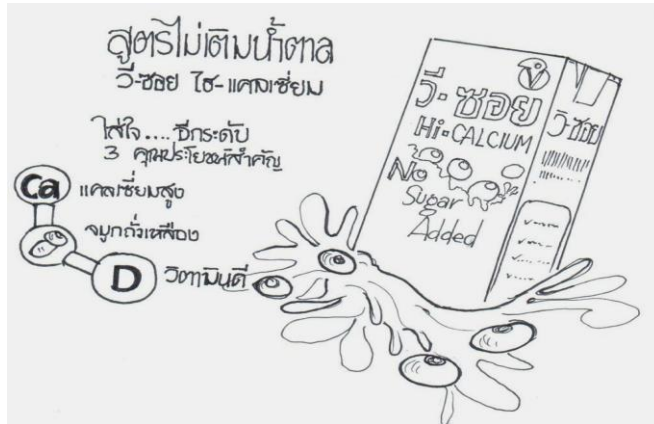 สูตรไม่เติมน้ำตาล
วี-ซอย ไฮ-แคลเซี่ยม
ใส่ใจ....อีกระดับ
3 คุณประโยชน์สำคัญ
Ca แคลเซี่ยมสูง
จมูกถั่วเหลือง
D วิตามินดี
V
วี-ซอย
Hi-CALCIUM
No
Sugar
Added
วี-ซอย